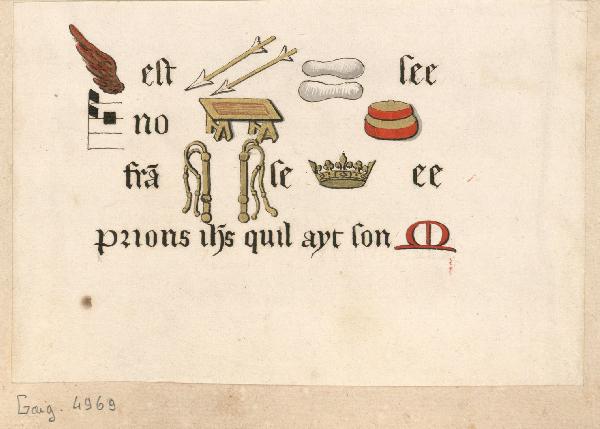 est see
no
frā se ee
prions ihs quil ayt son M
Gaig. 4969